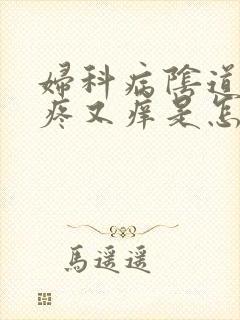 婦科病陰道
疼又癢是怎
馬遥遥